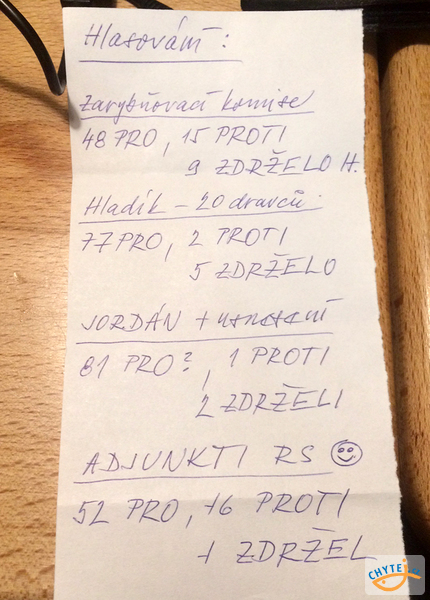 Hlasování:
Zarybňovací komise
48 PRO, 15 PROTI
9 ZDRŽELO H.
Hladík – 20 dravců
77 PRO, 2 PROTI
5 ZDRŽELO
JORDÁN + usnesení
81 PRO?, 1 PROTI
2 ZDRŽELI
ADJUNKTI RS
52 PRO, 16 PROTI
1 ZDRŽEL
CHYTEJ